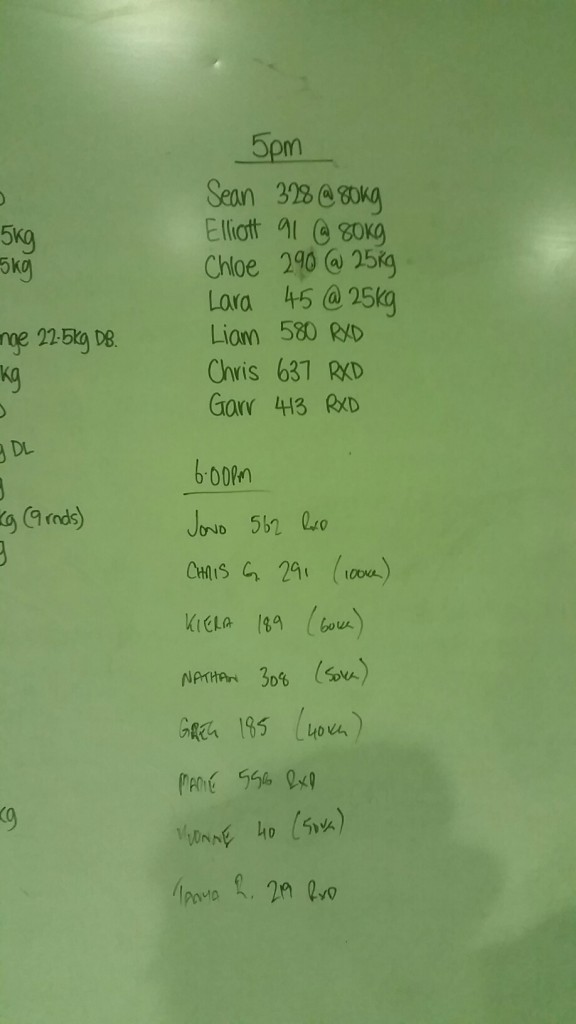 5pm
Sean 328 @ 80kg
Elliott 91 @ 80kg
Chloe 290 @ 25kg
Lara 45 @ 25kg
Liam 580 RXD
Chris 637 RXD
Garr 413 RXD
5kg
5kg
nge 22.5kg DB.
kg
g DL
kg (9 rnds)
kg
6.00pm
Jono 562 RXD
CHRIS G 291 (100kg)
KIERA 189 (60kg)
NATHAN 308 (50kg)
GREG 185 (40kg)
556 RXD
YVONNE 40 (50kg)
R. 219 RXD